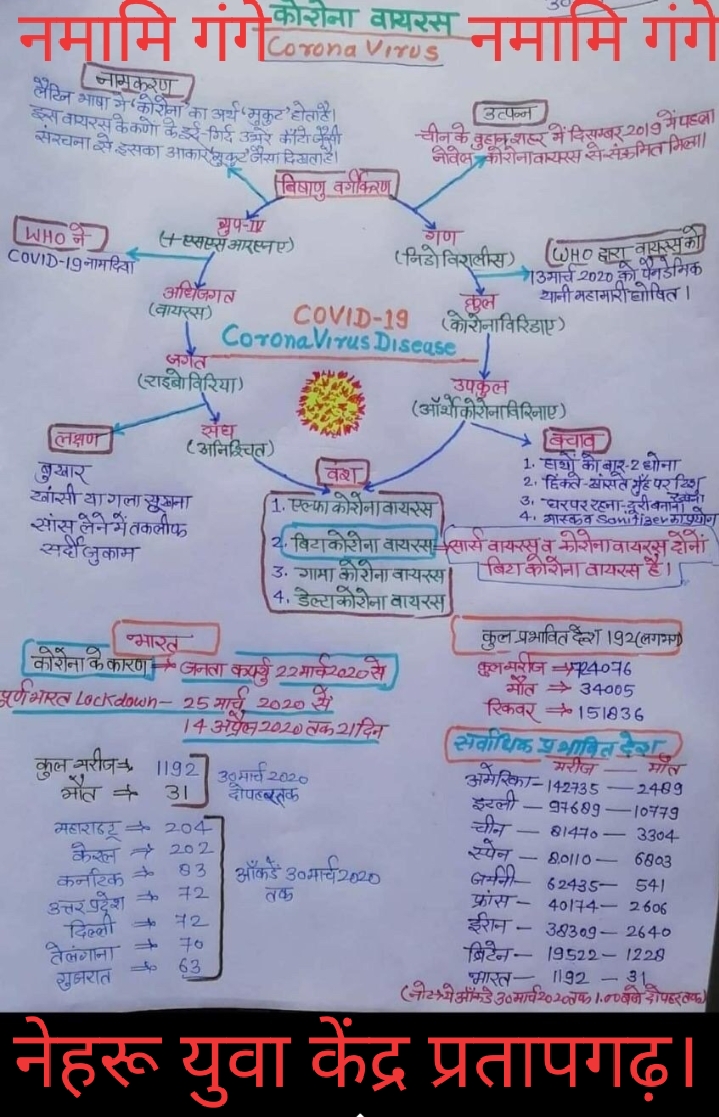 कोरोना वायरस
नमामि गंगे
नमामि गंगे
Corona Virus
30
नामकरण
लैटिन भाषा में 'कोरोना' का अर्थ 'मुकुट' होता है।
इस वायरस के कणों के इर्द-गिर्द उभरे काँटे जैसी
संरचना से इसका आकार 'मुकुट' जैसा दिखता है।
उत्पन्न
चीन के वुहान शहर में दिसम्बर 2019 में पहला
नोवेल कोरोना वायरस से संक्रमित मिला।
विषाणु वर्गीकरण
ग्रुप-IV
(+एसएस आरएनए)
गण
(निडोविरालीस)
WHO ने
COVID-19 नाम दिया
WHO द्वारा वायरस को
13 मार्च 2020 को पैनडेमिक
यानी महामारी घोषित।
अधिजगत
(वायरस)
कुल
(कोरोनाविरिडाए)
COVID-19
Corona Virus Disease
जगत
(राइबोविरिया)
उपकुल
(ऑर्थोकोरोनाविरिनाए)
संघ
(अनिश्चित)
लक्षण
बुखार
खांसी या गला सूखना
सांस लेने में तकलीफ
सर्दी जुकाम
बचाव
1. हाथों को बार-2 धोना
2. छिंकते-खांसते मुँह पर टिशु रखना
3. घर पर रहना-दूरी बनाना
4. मास्क व Sanitizer का प्रयोग
वंश
1. एल्फा कोरोना वायरस
2. बिटा कोरोना वायरस
3. गामा कोरोना वायरस
4. डेल्टा कोरोना वायरस
सार्स वायरस व कोरोना वायरस दोनों
बिटा कोरोना वायरस है।
भारत
कोरोना के कारण → जनता कर्फ्यु 22 मार्च 2020 से
पूर्ण भारत Lockdown - 25 मार्च 2020 से
14 अप्रैल 2020 तक 21 दिन
कुल मरीज → 1192
मौत → 31
30 मार्च 2020
दोपहर तक
महाराष्ट्र → 204
केरल → 202
कर्नाटक → 83
उत्तर प्रदेश → 72
दिल्ली → 72
तेलंगाना → 70
गुजरात → 63
आँकडें 30 मार्च 2020
तक
कुल प्रभावित देश 192 (लगभग)
कुल मरीज → 724076
मौत → 34005
रिकवर → 151836
सर्वाधिक प्रभावित देश
मरीज — मौत
अमेरिका - 142735 — 2489
इटली - 97689 — 10779
चीन - 81470 — 3304
स्पेन - 80110 — 6803
जर्मनी - 62435 — 541
फ्रांस - 40174 — 2606
ईरान - 38309 — 2640
ब्रिटेन - 19522 — 1228
भारत - 1192 — 31
(नोट → ये आँकडे 30 मार्च 2020 तक 1.00 बजे दोपहर तक)
नेहरू युवा केंद्र प्रतापगढ़।